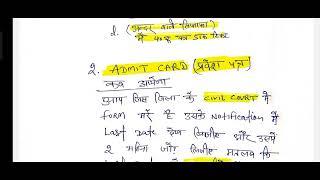 d. (अन्दर वाले लिफाफा)
में 40 रु का डाक टिकट
2. ADMIT CARD (प्रवेश पत्र)
कब आयेगा
आप जिस जिला के CIVIL COURT में
form भरें हैं उसके Notification में
Last Date देख लिजीए और उसमें
2 महिना जोड़ लिजीए मतलब कि